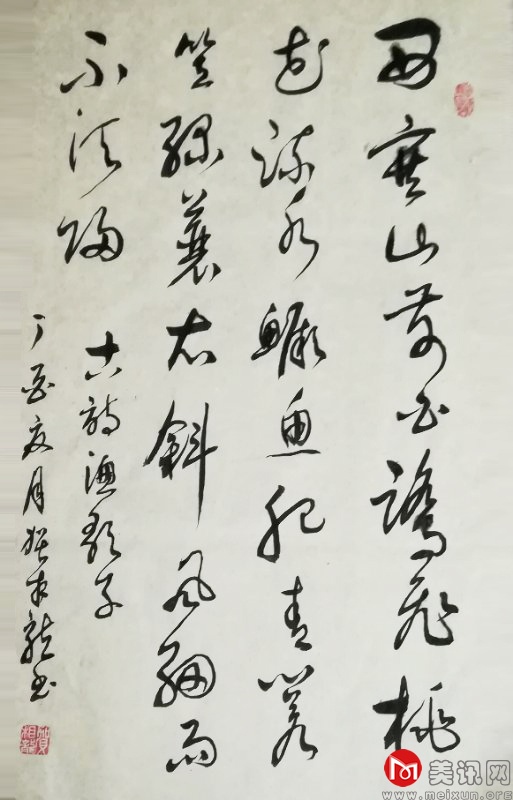 西塞山前白鹭飞桃
花流水鳜鱼肥青箬
笠绿蓑衣斜风细雨
不须归
古诗渔歌子
丁酉夏月贺相龙书
美讯网
www.meixun.org